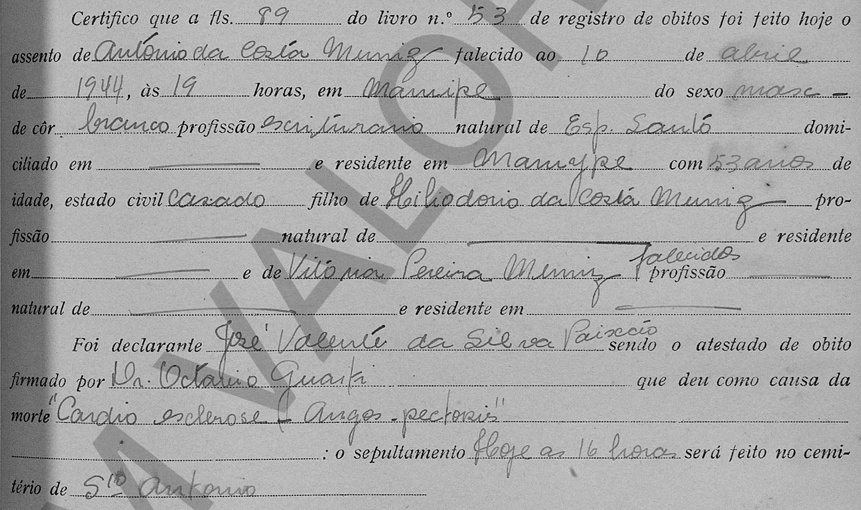 Certifico que a fls. 89 do livro n.º 53 de registro de obitos foi feito hoje o
assento de António da Costa Muniz falecido ao 10 de abril
de 1944, às 19 horas, em Maruipe do sexo masc -
de côr branco profissão escriturario natural de Esp. Santo domi-
ciliado em e residente em Maruype com 53 anos de
idade, estado civil casado filho de Hiliodorio da Costa Muniz pro-
fissão natural de e residente
em e de Vitória Pereira Muniz falecidos profissão
natural de e residente em
Foi declarante José Valente da Silva Paixão sendo o atestado de obito
firmado por Dr. Octavio que deu como causa da
morte "Cardio esclerose ( Angos-pectoris"
: o sepultamento Hoje as 16 horas será feito no cemi-
tério de Sto Antonio
M VALOR